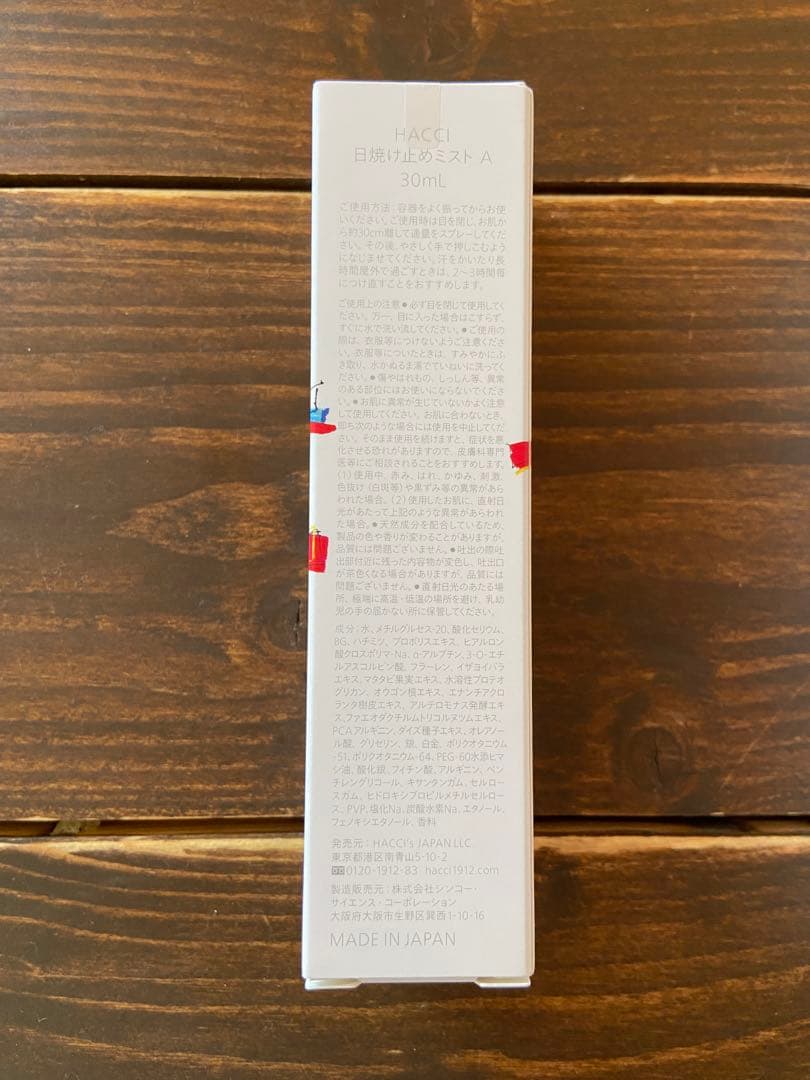 HACCI
日焼け止めミスト A
30mL
ご使用方法：容器をよく振ってからお使
いください。ご使用時は目を閉じ、お肌か
ら約30cm離して適量をスプレーしてくだ
さい。その後、やさしく手で押しこむよう
になじませてください。汗をかいたり長
時間屋外で過ごすときは、2〜3時間毎
につけ直すことをおすすめします。
ご使用上の注意●必ず目を閉じて使用してく
ださい。万一、目に入った場合はこすらず、
すぐに水で洗い流してください。●ご使用の
際は、衣服等につけないようご注意くださ
い。衣服等についたときは、すみやかにふ
き取り、水かぬるま湯でていねいに洗ってく
ださい。●傷やはれもの、しっしん等、異常
のある部位にはお使いにならないでくださ
い。●お肌に異常が生じていないかよく注意
して使用してください。お肌に合わないとき、
即ち次のような場合には使用を中止してくだ
さい。そのまま使用を続けますと、症状を悪
化させる恐れがありますので、皮膚科専門
医等にご相談されることをおすすめします。
（1）使用中、赤み、はれ、かゆみ、刺激、
色抜け（白斑等）や黒ずみ等の異常があら
われた場合。（2）使用したお肌に、直射日
光があたって上記のような異常があらわれ
た場合。●天然成分を配合しているため、
製品の色や香りが変わることがありますが、
品質には問題ございません。●吐出の際吐
出部付近に残った内容物が変色し、吐出口
が茶色くなる場合がありますが、品質には
問題ございません。●直射日光のあたる場
所、極端に高温・低温の場所を避け、乳幼
児の手の届かない所に保管してください。
成分：水、メチルグルセス-20、酸化セリウム、
BG、ハチミツ、プロポリスエキス、ヒアルロン
酸クロスポリマ-Na、α-アルブチン、3-O-エチ
ルアスコルビン酸、フラーレン、イザヨイバラ
エキス、マタタビ果実エキス、水溶性プロテオ
グリカン、オウゴン根エキス、エナンチアクロ
ランタ樹皮エキス、アルテロモナス発酵エキ
ス、ファエオダクチルムトリコルヌツムエキス、
PCAアルギニン、ダイズ種子エキス、オレアノー
ル酸、グリセリン、銀、白金、ポリクオタニウム
-51、ポリクオタニウム-64、PEG-60水添ヒマ
シ油、酸化銀、フィチン酸、アルギニン、ペン
チレングリコール、キサンタンガム、セルロー
スガム、ヒドロキシプロピルメチルセルロー
ス、PVP、塩化Na、炭酸水素Na、エタノール、
フェノキシエタノール、香料
発売元：HACCI's JAPAN LLC.
東京都港区南青山5-10-2
0120-1912-83 hacci1912.com
製造販売元：株式会社シンコー・
サイエンス・コーポレーション
大阪府大阪市生野区巽西1-10-16
MADE IN JAPAN